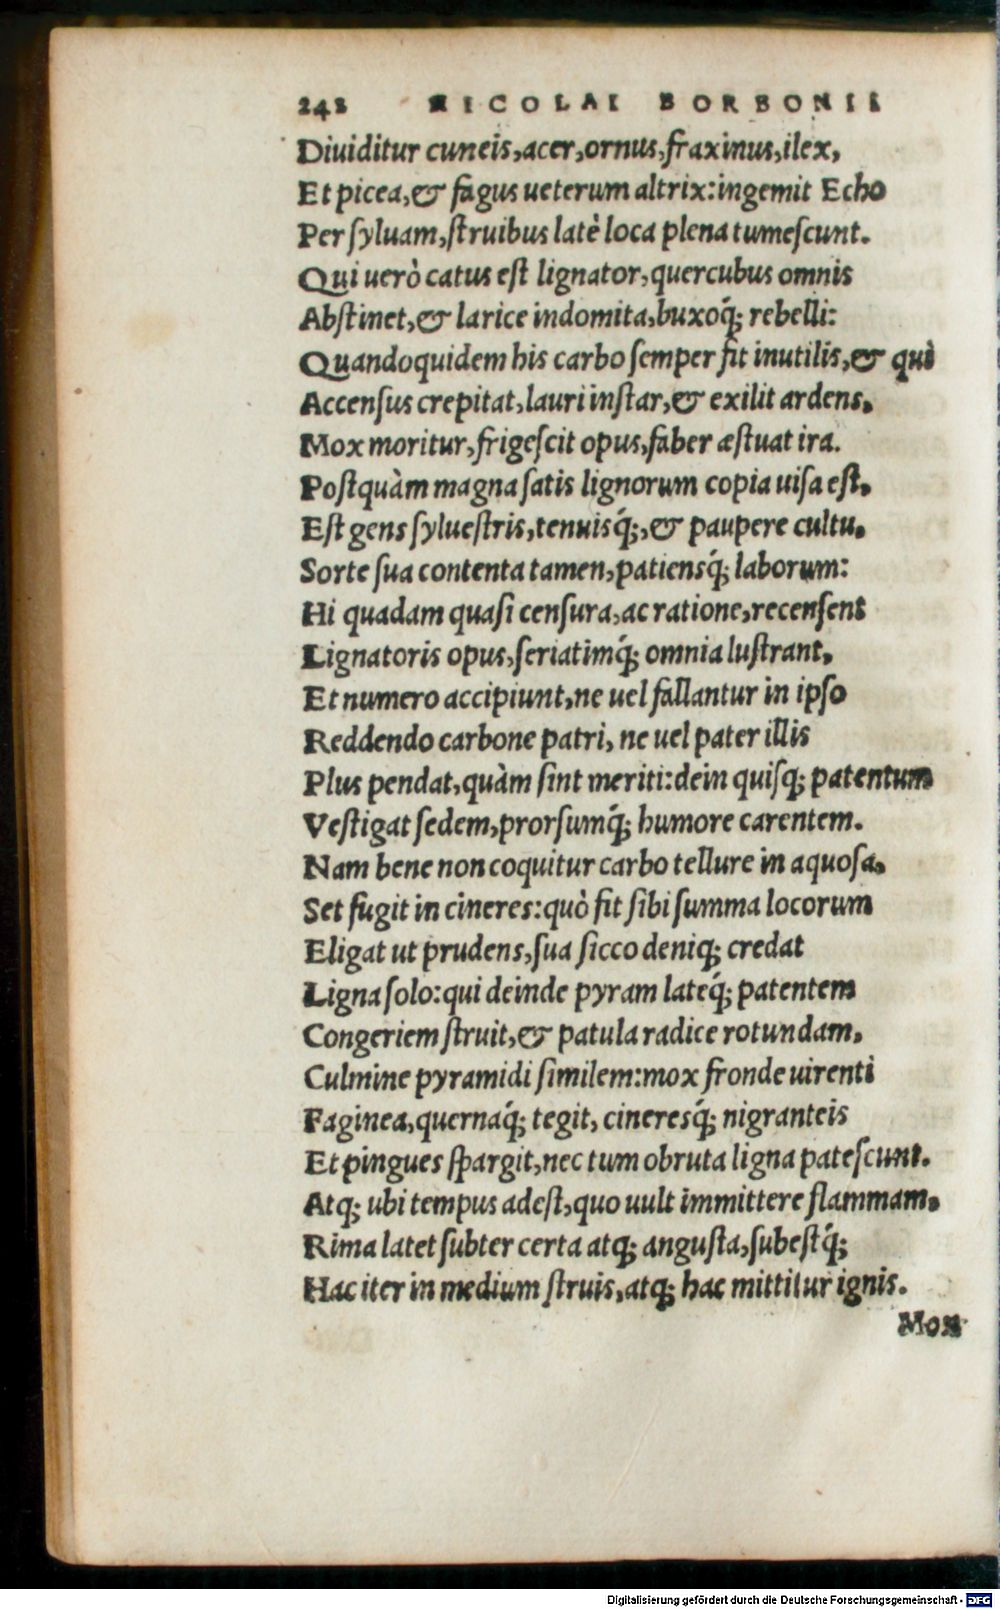 242 NICOLAI BORBONII
Diuiditur cuneis, acer, ornus, fraxinus, ilex,
Et picea, & fagus ueterum altrix: ingemit Echo
Per syluam, struibus latè loca plena tumescunt.
Qui uerò catus est lignator, quercubus omnis
Abstinet, & larice indomita, buxoq́; rebelli:
Quandoquidem his carbo semper fit inutilis, & qui
Accensus crepitat, lauri instar, & exilit ardens,
Mox moritur, frigescit opus, faber æstuat ira.
Postquàm magna satis lignorum copia uisa est,
Est gens syluestris, tenuisq́;, & paupere cultu,
Sorte sua contenta tamen, patiensq́; laborum:
Hi quadam quasi censura, ac ratione, recensent
Lignatoris opus, seriatimq́; omnia lustrant,
Et numero accipiunt, ne uel fallantur in ipso
Reddendo carbone patri, ne uel pater illis
Plus pendat, quàm sint meriti: dein quisq; patentum
Vestigat sedem, prorsumq́; humore carentem.
Nam bene non coquitur carbo tellure in aquosa,
Set fugit in cineres: quò fit sibi summa locorum
Eligat ut prudens, sua sicco deniq; credat
Ligna solo: qui deinde pyram lateq́; patentem
Congeriem struit, & patula radice rotundam,
Culmine pyramidi similem: mox fronde uirenti
Faginea, quernaq́; tegit, cineresq́; nigranteis
Et pingues spargit, nec tum obruta ligna patescunt.
Atq; ubi tempus adest, quo uult immittere flammam,
Rima latet subter certa atq; angusta, subestq́;
Hac iter in medium struis, atq; hac mittitur ignis.
Mox
Digitalisierung gefördert durch die Deutsche Forschungsgemeinschaft - DFG